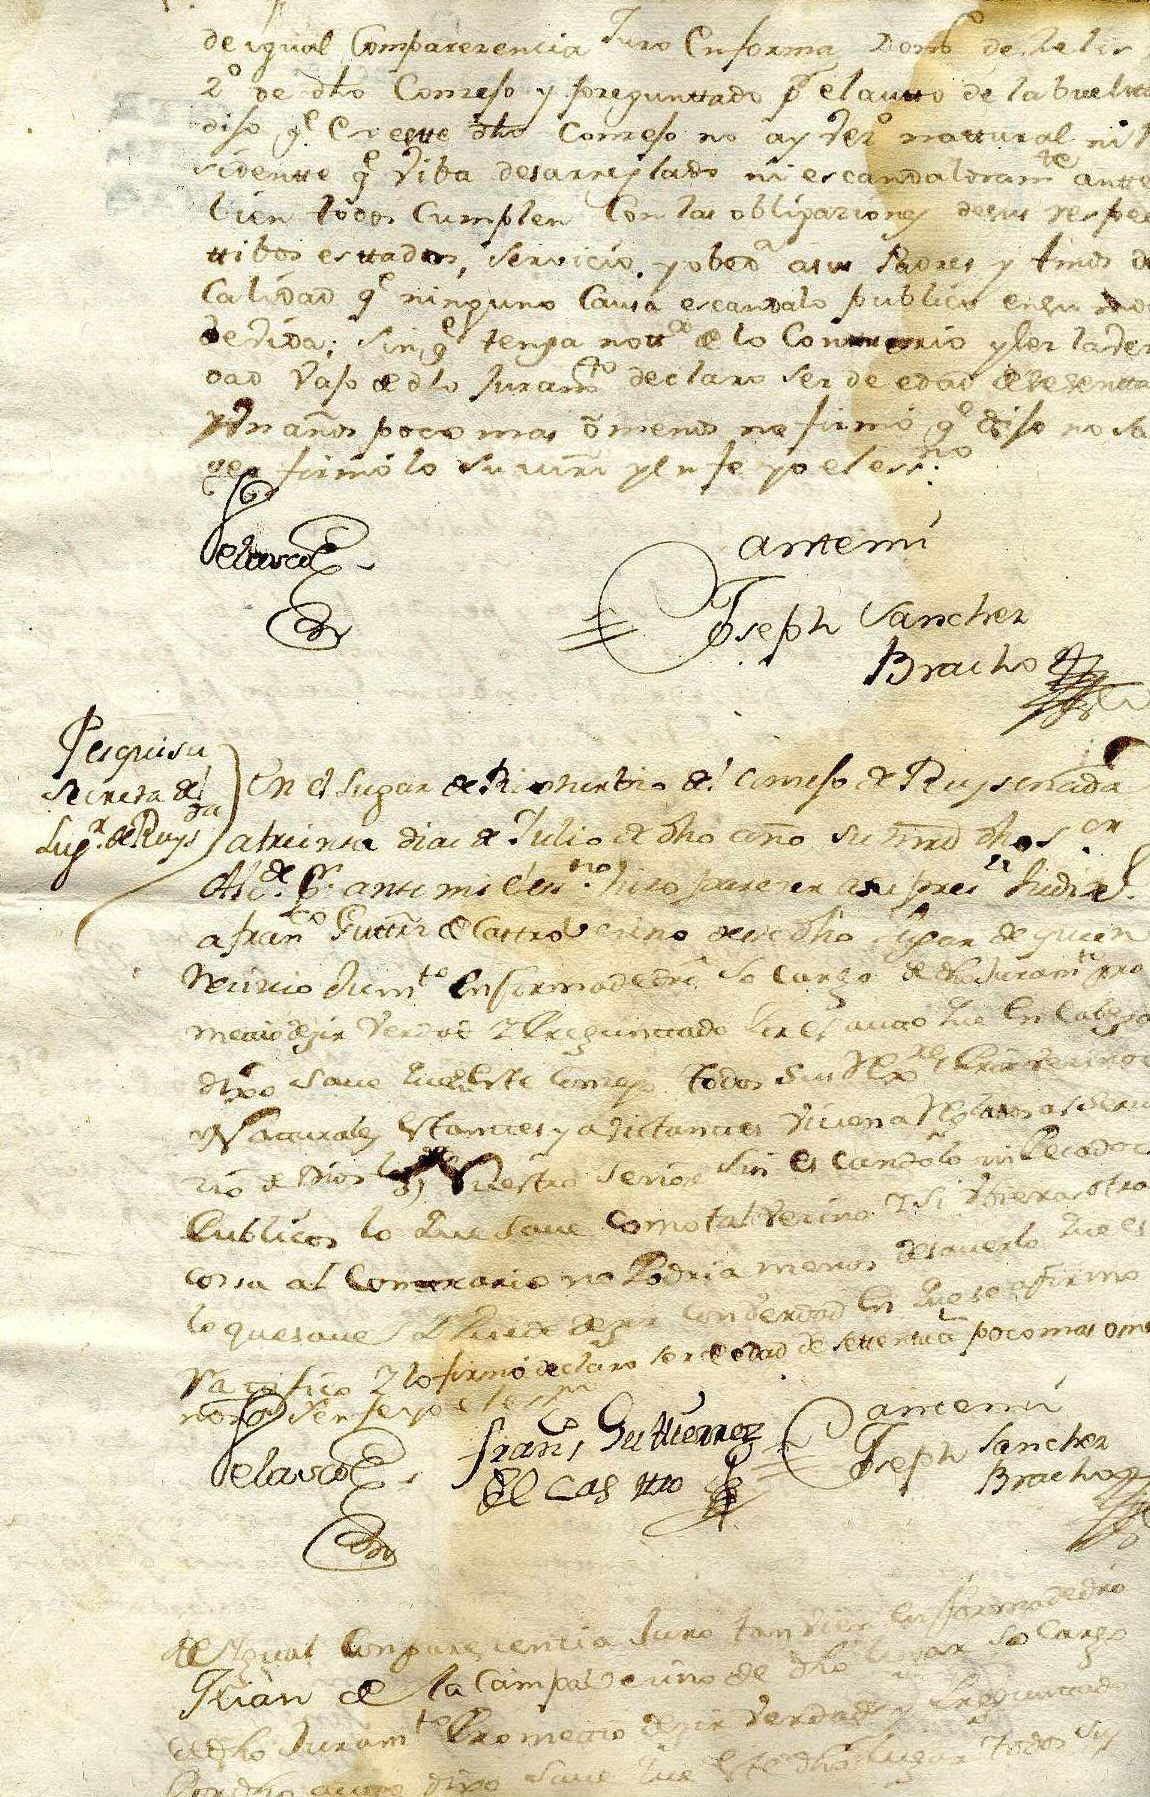 de igual Comparerencia Juro En forma Domº de
2º de dho Conzejo y preguntado pr el autto de la buelta
dijo qe En este dho Conzejo no ay vezº nattural ni
sidentte qe viba desarreglado ni escandalosamte antte
bien todos Cumplen Con las obligaziones de sus respec
ttibos esttados, servicio, y obedª a sus Padres y Amos de
Calidad qe ninguno Causa escandalo publico en su modo
de vida; sin qe tenga nottª de lo Conttrario y es la ver
dad vajo de dho Juramto declaro ser de edad de sesentta
y un años poco mas ô menos no firmó qe dijo no sa
ver firmólo su mrd y en fe yo el essno
Velasco
antemi
Joseph Sanchez
Bracho
Pesquisa
Secreta del
Lugr de Ruysda
En el Lugar de Rioturbio del Conzejo de Ruyseñada
a treinta dias de Julio de dho año su mrd dho Sor
Alcde Pr ante mi el essno hizo parezer a su presa Judizl
a Franco Guttrrz de Castro vezino de este dho Lugar de quien
Rezivio Juramto En forma de dro so cargo de dho Juramto pro
metio dezir verdad Y Preguntado Por el auto Que En Cabeza
dixo save Que En Este Conzejo todos sus
y Naturales Estantes y avitantes viven arreglados al servi
zio de Dios Nuestro Señor sin escandolo ni Pecados
Publicos lo Que save Como tal vezino Y si Ubiera otra
cossa al Comtrario no Podria menos de saverlo Que es
lo que save Y Puede dezir con verdad En Que se afirmo
Ratifico Y lo firmó declaro ser de edad de settenta poco mas o me
nos y en fe yo el essno
Velasco
Franco Gutierrez
de Castro
antemi
Joseph Sanchez
Bracho
de Ygual Comparezencia Juro tanvien En forma de dro
Juan de la Campa vezino de dho Lugar so Cargo
de dho Juramto Prometio dezir verdad y Preguntado
Por dho auto dixo save Que Este dho Lugar todos sus